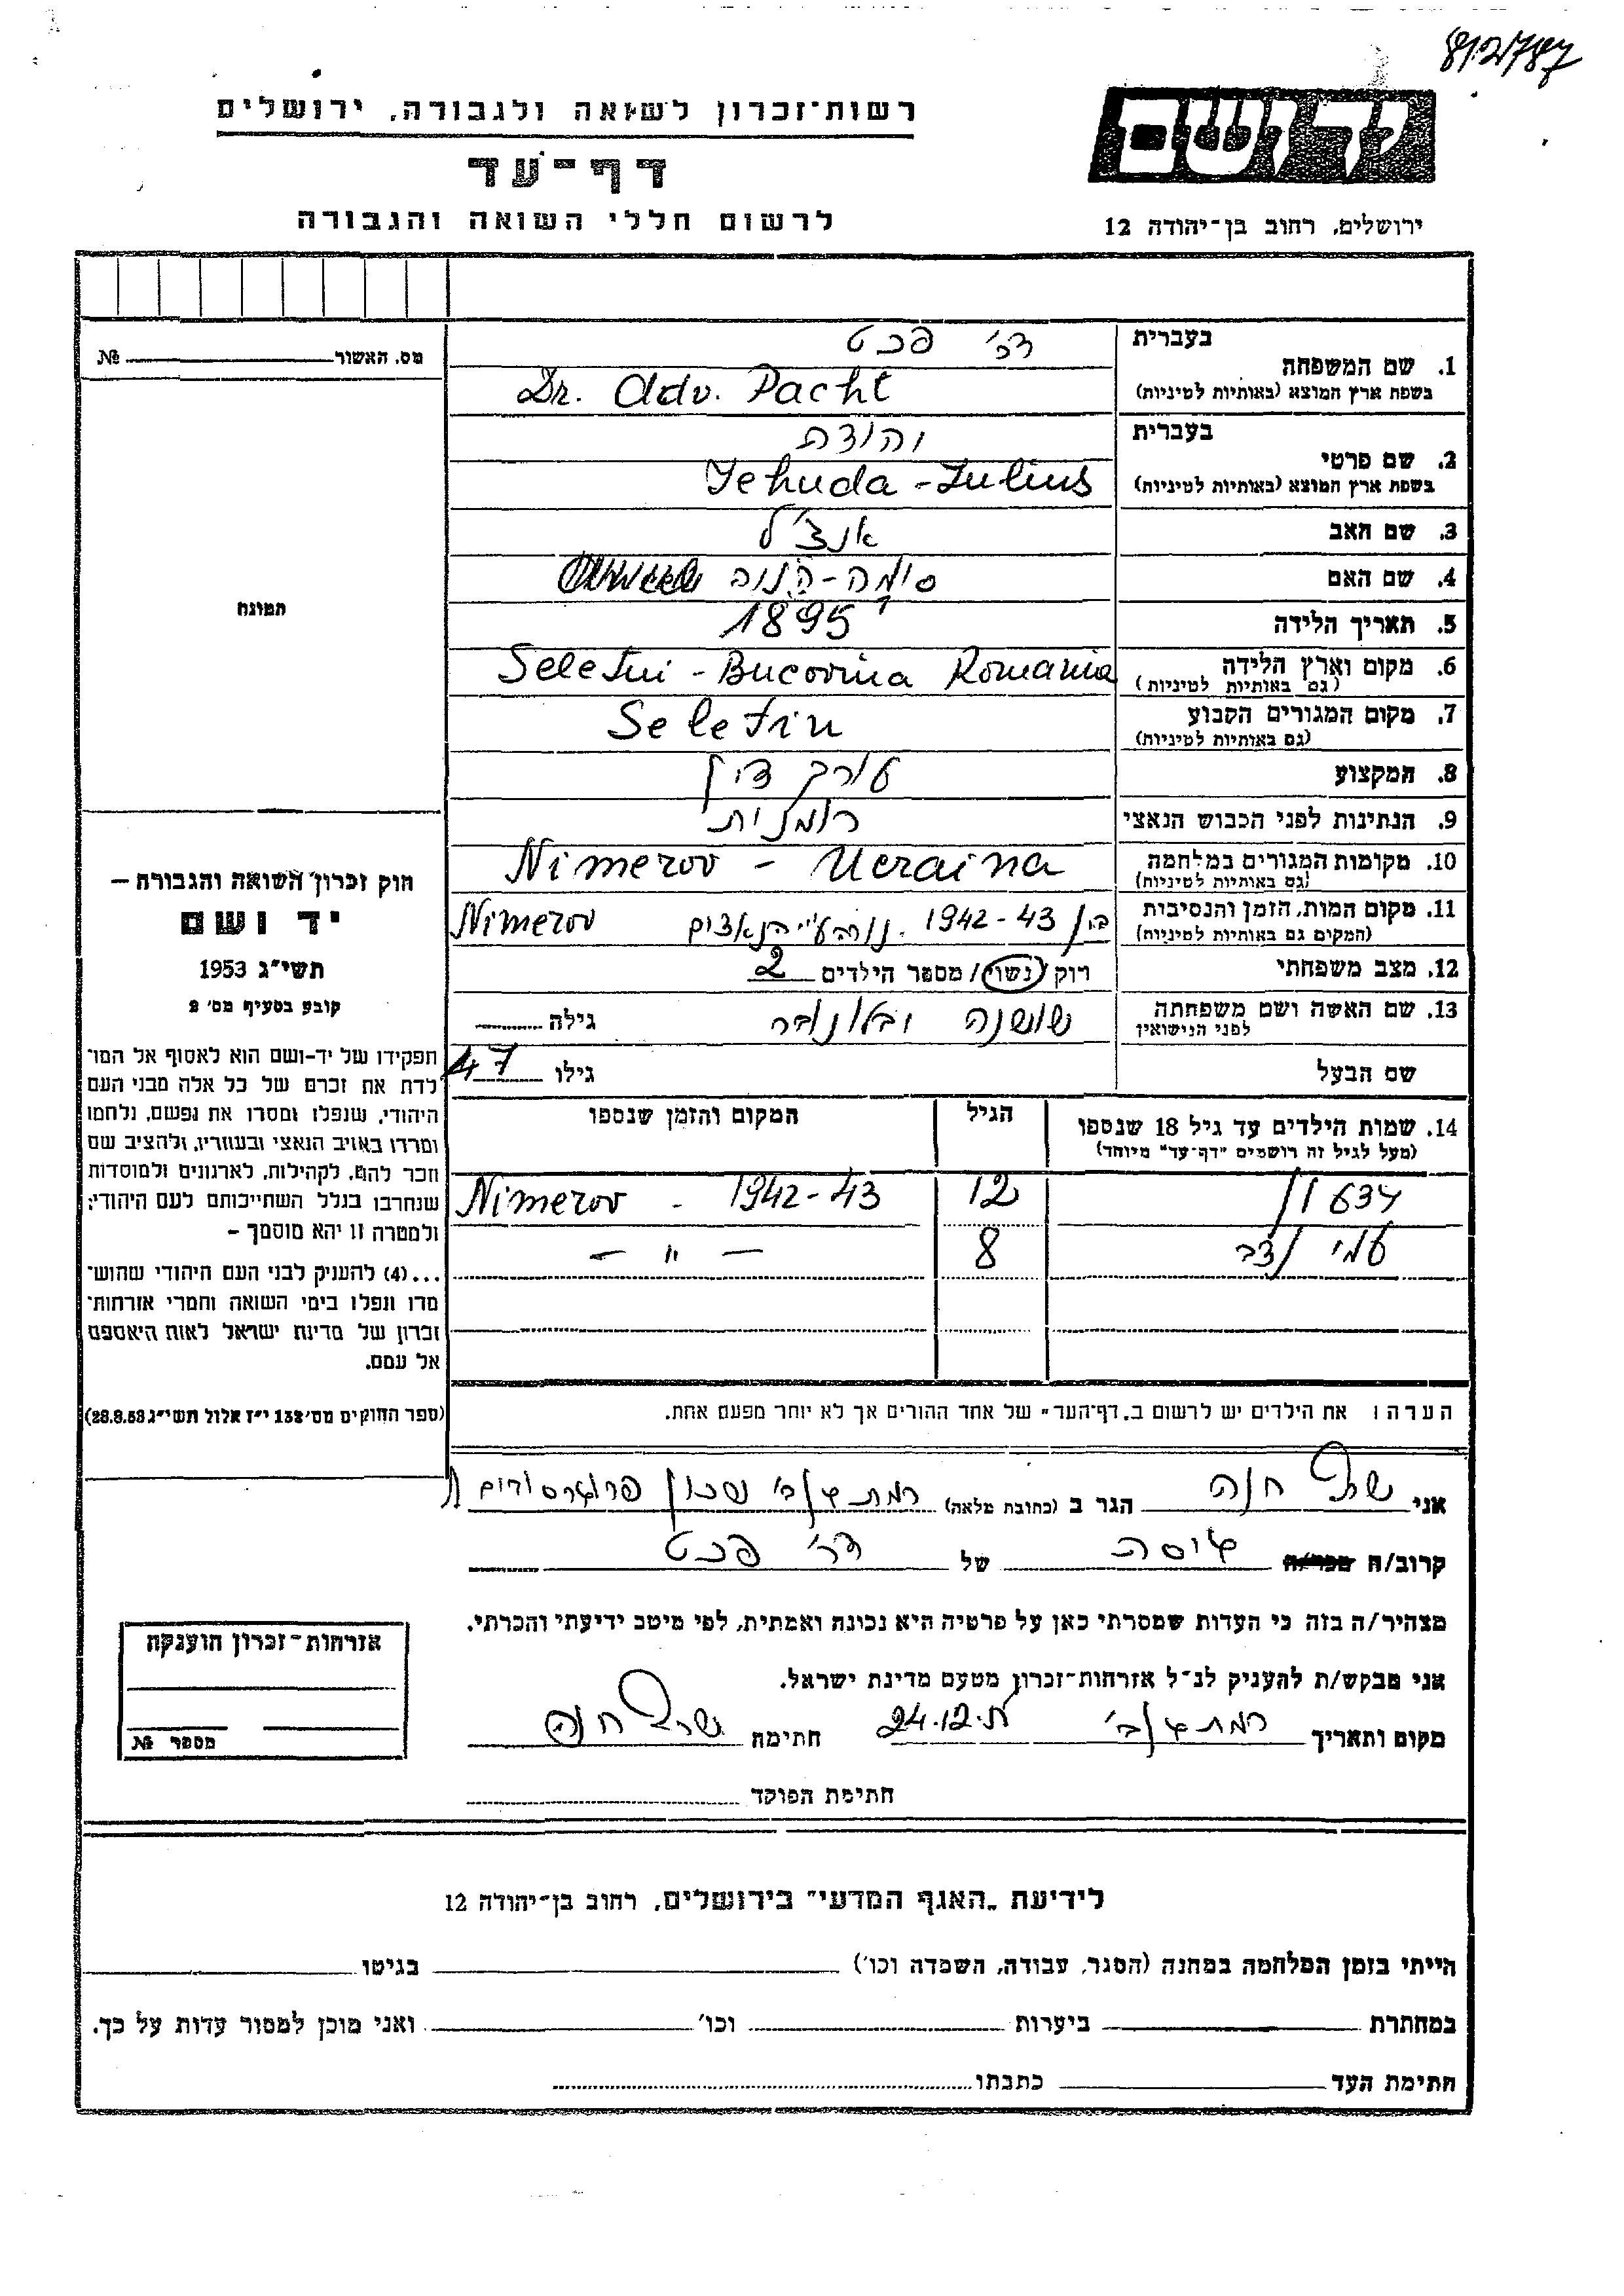 812/787
ידושם
רשות־זכרון לשואה ולגבורה, ירושלים
דף־עד
לרשום חללי השואה והגבורה
ירושלים, רחוב בן־יהודה 12
מס. האשור № 
תמונה
1. שם המשפחה
בעברית דר' פכט
בשפת ארץ המוצא (באותיות לטיניות) Dr. Adv. Pacht
2. שם פרטי
בעברית יהודה
בשפת ארץ המוצא (באותיות לטיניות) Yehuda - Iulius
3. שם האב אנצ'ל
4. שם האם סימה-
5. תאריך הלידה 1895
6. מקום וארץ הלידה Seletin - Bucovina Romania
(גם באותיות לטיניות)
7. מקום המגורים הקבוע Seletin
(גם באותיות לטיניות)
8. המקצוע עורך דין
9. הנתינות לפני הכבוש הנאצי רומנית
10. מקומות המגורים במלחמה Nimerov - Ucraina
(גם באותיות לטיניות)
11. מקום המות, הזמן והנסיבות 1942-43 נורה ע"י הנאצים Nimerov
(המקום גם באותיות לטיניות)
12. מצב משפחתי רוק/נשוי/ מספר הילדים 2
13. שם האשה ושם משפחתה שושנה גילה
לפני הנישואין
שם הבעל גילו 47
14. שמות הילדים עד גיל 18 שנספו הגיל המקום והזמן שנספו
(מעל לגיל זה רושמים "דף־עד" מיוחד)
12 1942-43 - Nimerov
8 — " —
הערה: את הילדים יש לרשום ב„דף־העד" של אחד ההורים אך לא יותר מפעם אחת.
חוק זכרון השואה והגבורה —
יד ושם
תשי"ג 1953
קובע בסעיף מס' 2
תפקידו של יד-ושם הוא לאסוף אל המו־
לדת את זכרם של כל אלה מבני העם
היהודי, שנפלו ומסרו את נפשם, נלחמו
ומרדו באויב הנאצי ובעוזריו, ולהציב שם
וזכר להם, לקהילות, לארגונים ולמוסדות
שנחרבו בגלל השתייכותם לעם היהודי;
ולמטרה זו יהא מוסמך —
...(4) להעניק לבני העם היהודי שהוש־
מדו ונפלו בימי השואה והמרי אזרחות־
זכרון של מדינת ישראל לאות היאספם
אל עמם.
(ספר החוקים מס' 132 י"ז אלול תשי"ג 28.8.53)
אני חנה הגר ב (כתובת מלאה) רמת גן ב' שכון
קרוב/ה מכר/ה גיסה של דר' פכט
מצהיר/ה בזה כי העדות שמסרתי כאן על פרטיה היא נכונה ואמתית, לפי מיטב ידיעתי והכרתי.
אני מבקש/ת להעניק לנ"ל אזרחות־זכרון מטעם מדינת ישראל.
מקום ותאריך רמת גן ב' 24.12 חתימה חנה
חתימת הפוקד
אזרחות־זכרון הוענקה
מספר №
לידיעת „האגף המדעי" בירושלים, רחוב בן־יהודה 12
הייתי בזמן המלחמה במחנה (הסגר, עבודה, השמדה וכו') בגיטו
במחתרת ביערות וכו' ואני מוכן למסור עדות על כך.
חתימת העד כתבתו